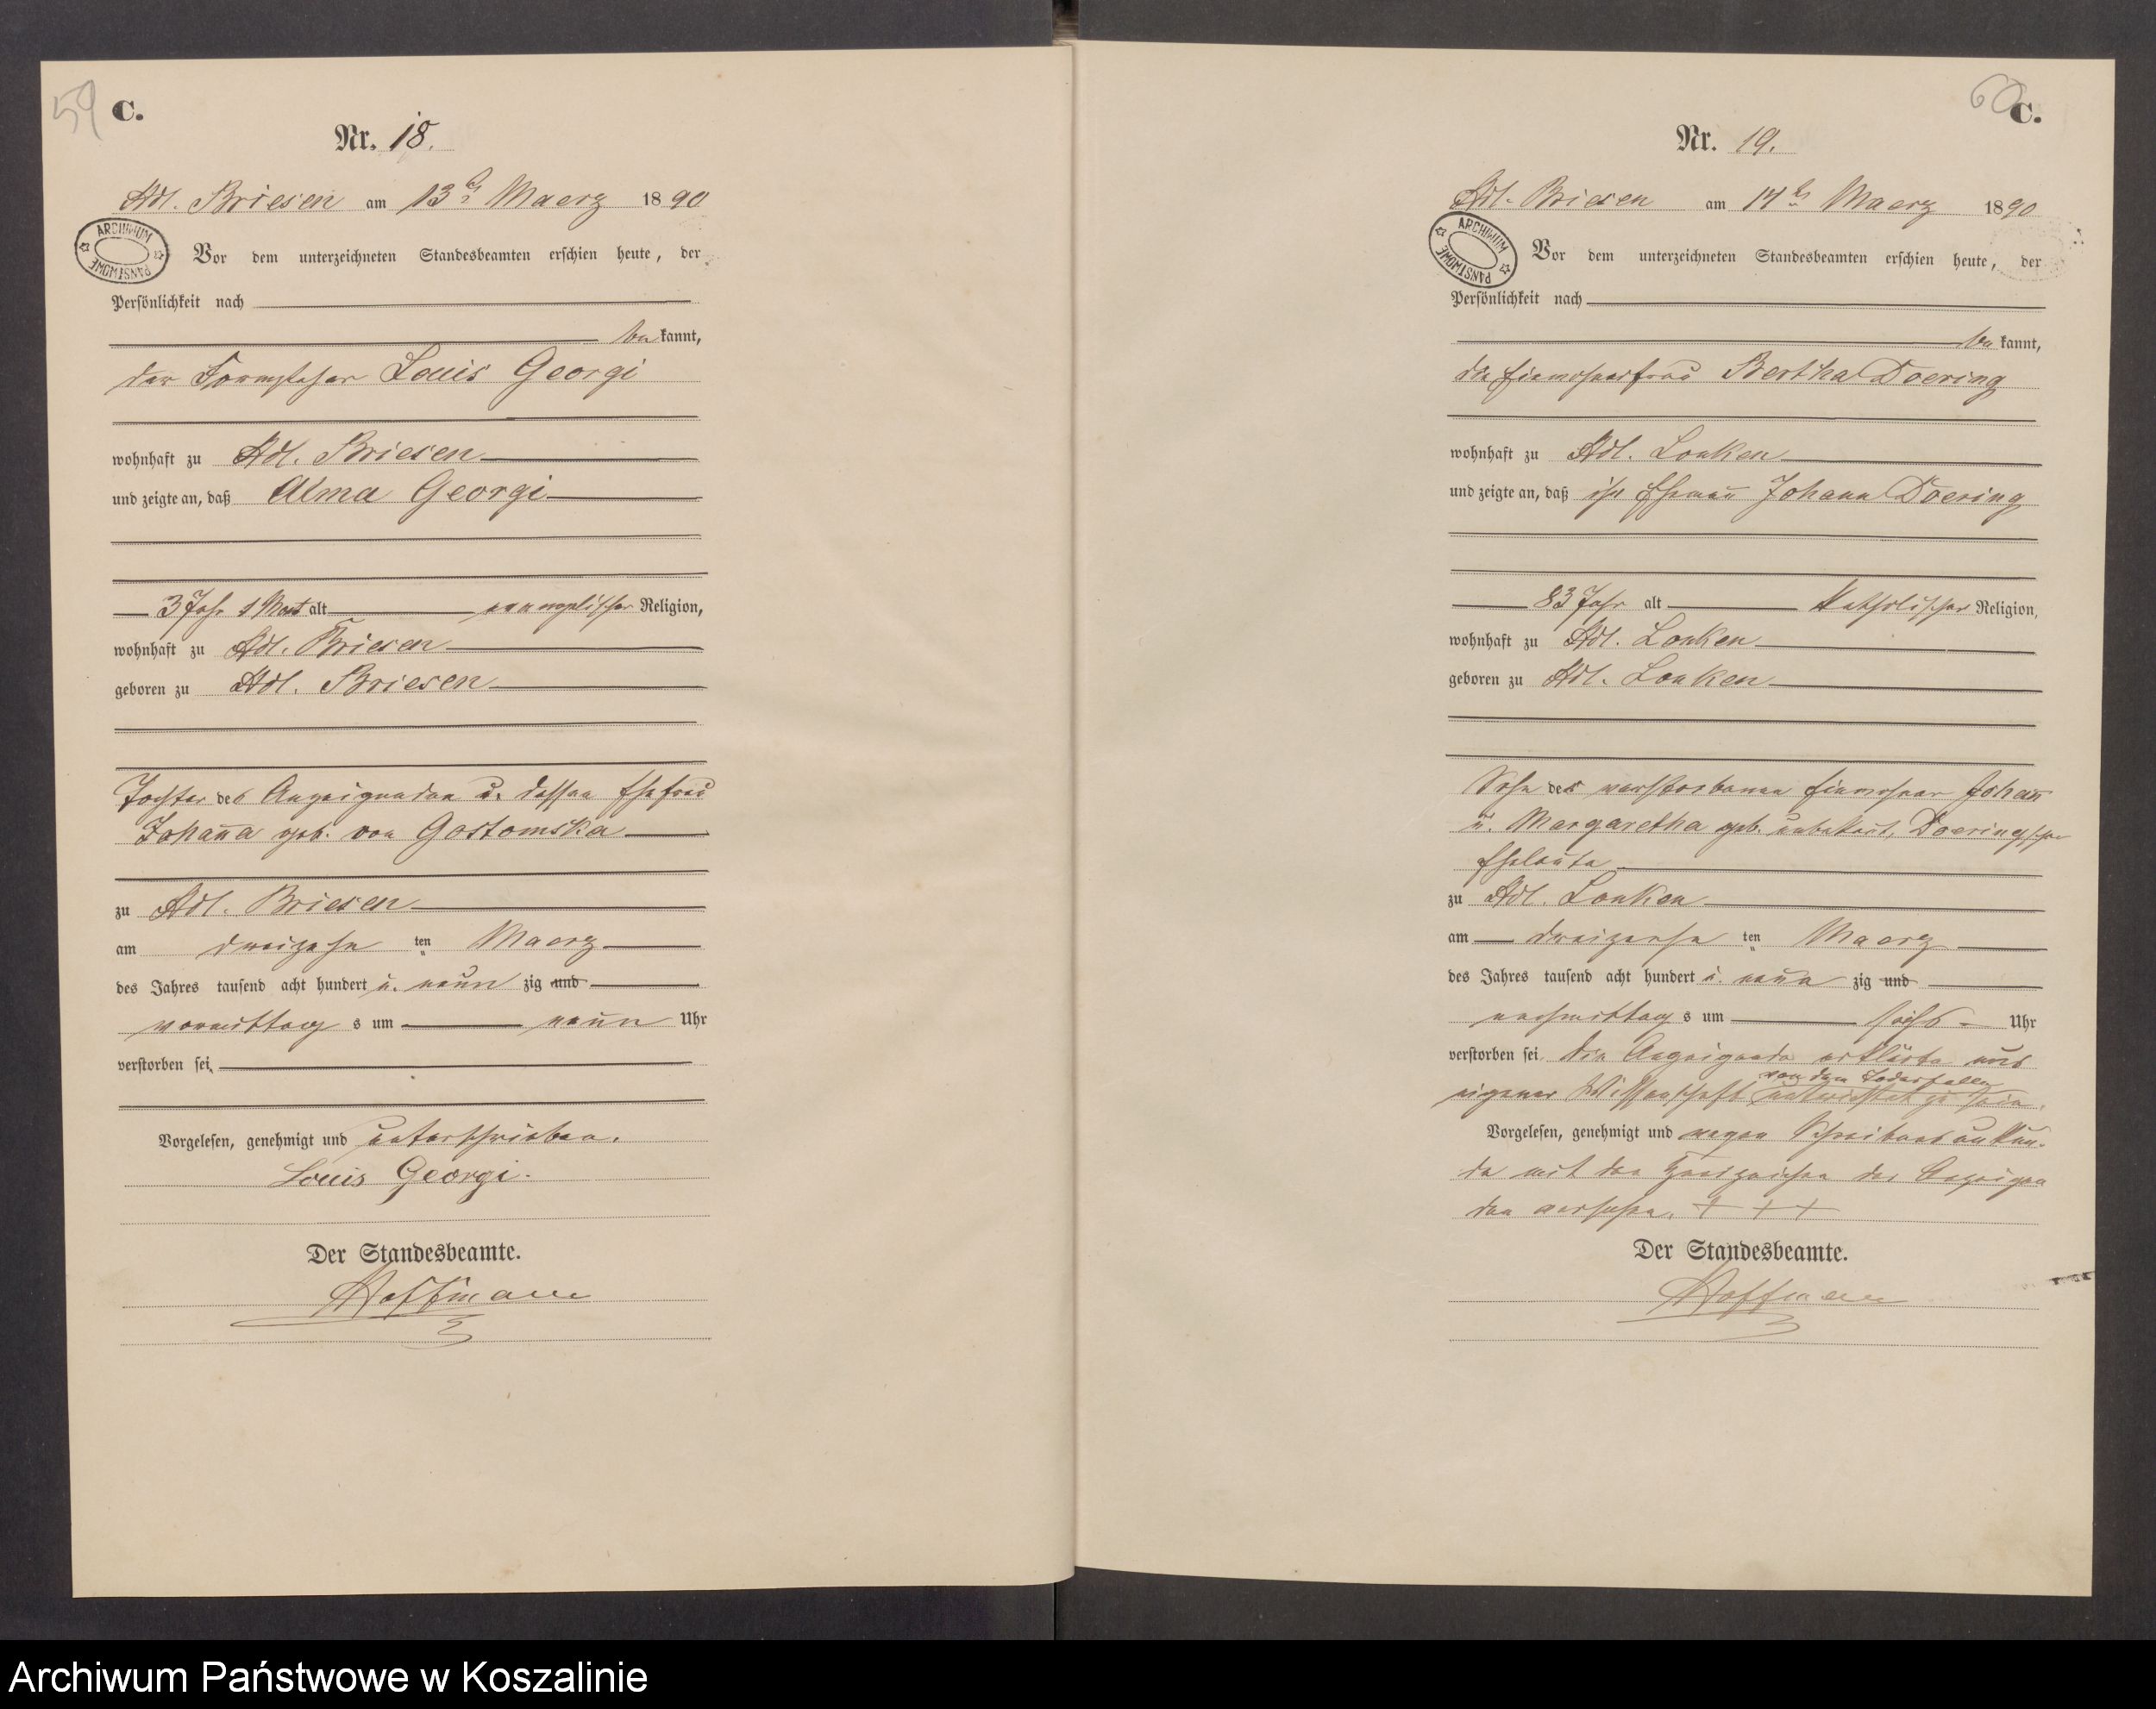 59
C.
Nr. 18.
Adl. Briesen am 13ten Maerz 1890
ARCHIWUM PAŃSTWOWE
Vor dem unterzeichneten Standesbeamten erschien heute, der
Persönlichkeit nach
be kannt,
der Louis Georgi
wohnhaft zu Adl. Briesen
und zeigte an, daß Alma Georgi
3 Jahr 1 Monat alt evangelischer Religion,
wohnhaft zu Adl. Briesen
geboren zu Adl. Briesen
Tochter des Anzeigenden u. dessen Ehefrau
Johanna geb. von Gostomska
zu Adl. Briesen
am dreizehn ten Maerz
des Jahres tausend acht hundert u. neun zig und
vormittag s um neun Uhr
verstorben sei
Vorgelesen, genehmigt und unterschrieben.
Louis Georgi.
Der Standesbeamte.
Hoffmann
60
C.
Nr. 19.
Adl. Briesen am 14ten Maerz 1890
ARCHIWUM PAŃSTWOWE
Vor dem unterzeichneten Standesbeamten erschien heute, der
Persönlichkeit nach
be kannt,
die Einwohnerfrau Bertha Doering
wohnhaft zu Adl. Lonken
und zeigte an, daß ihr Ehemann Johann Doering
83 Jahr alt Katholischer Religion,
wohnhaft zu Adl. Lonken
geboren zu Adl. Lonken
Sohn der verstorbenen Einwohner Johann
u. Margaretha geb. unbekannt, Doeringschen
Eheleute
zu Adl. Lonken
am dreizehn ten Maerz
des Jahres tausend acht hundert u. neun zig und
nachmittag s um sechs Uhr
verstorben sei. Die Anzeigende erklärte aus
eigener Wissenschaft von dem Todesfalle unterrichtet zu sein.
Vorgelesen, genehmigt und wegen Schreibensunkun-
de mit den Handzeichen der Anzeigen
den versehen. + + +
Der Standesbeamte.
Hoffmann
Archiwum Państwowe w Koszalinie